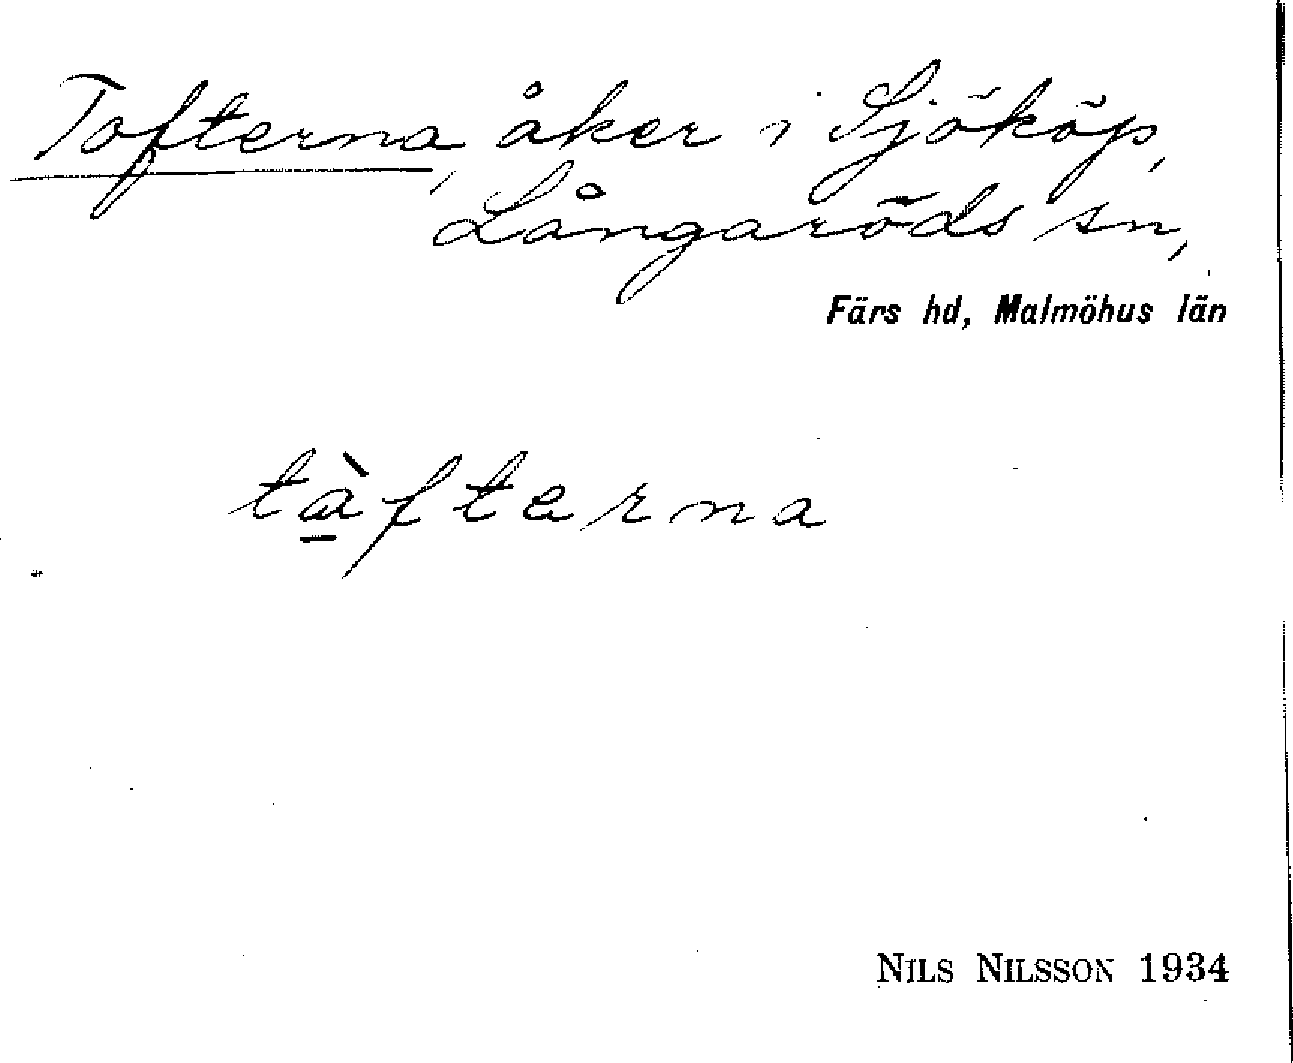 Tofterna, åker i Sjököp,
Långaröds sn,
Färs hd, Malmöhus län
tà̱fterna
NILS NILSSON 1934